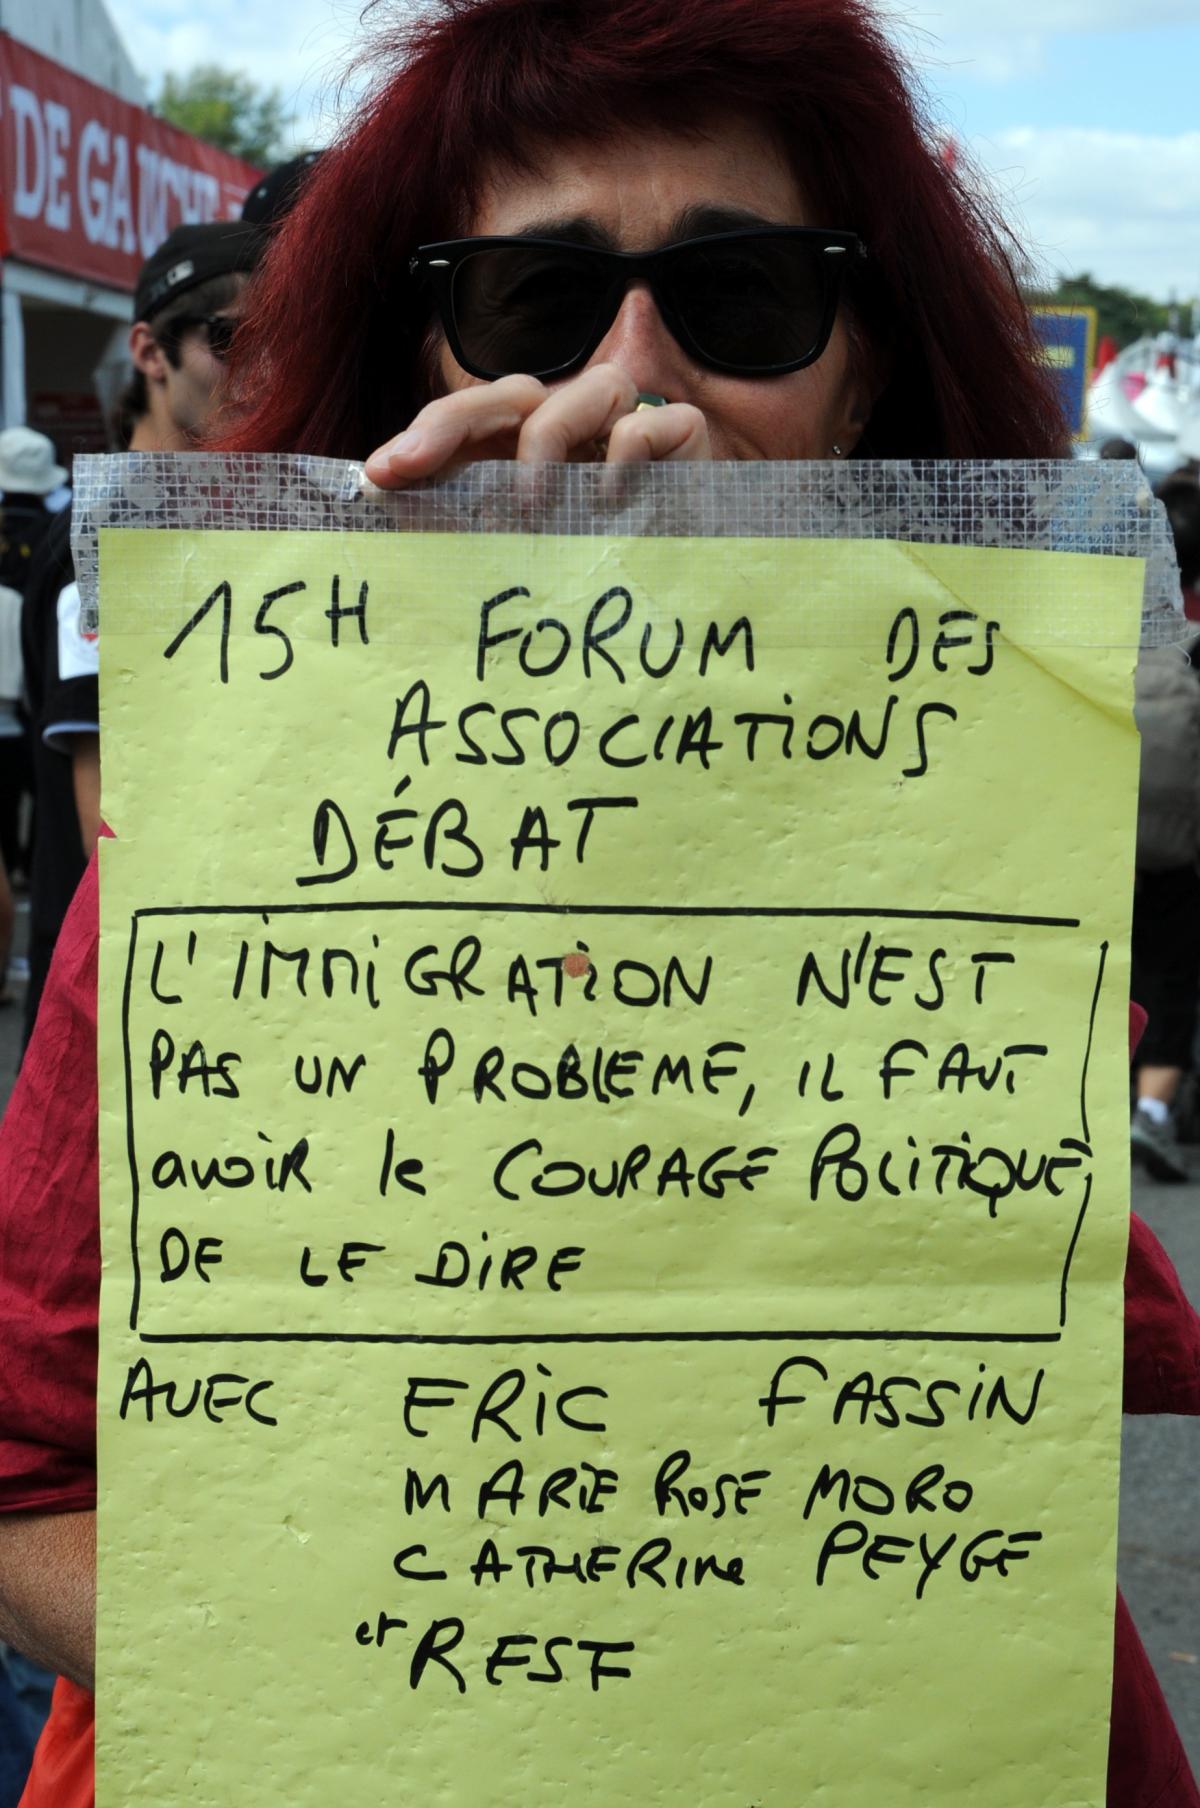 DE GAUCHE
15H FORUM DES
ASSOCIATIONS
DÉBAT
L'IMMIGRATION N'EST
PAS UN PROBLEME, IL FAUT
avoir le COURAGE POLITIQUE
DE LE DIRE
AVEC ERIC FASSIN
MARIE ROSE MORO
CATHERINE PEYGE
et RESF